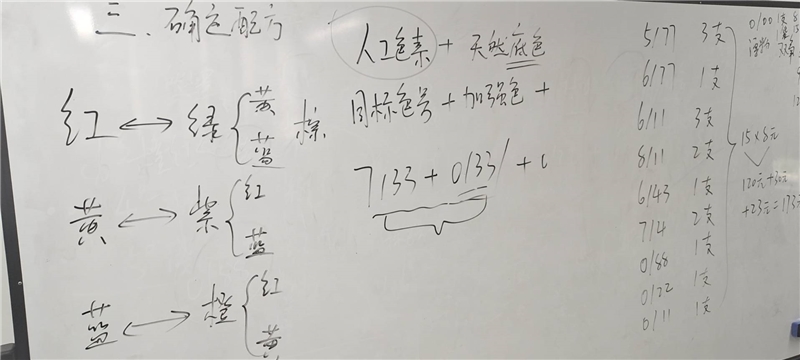 三、确定配方
红 ↔ 绿 { 黄 蓝 棕
黄 ↔ 紫 { 红 蓝
蓝 ↔ 橙 { 红 黄
人工色素 + 天然底色
目标色号 + 加强色 +
7/33 + 0/33 /
5/77 3支
6/77 1支
6/11 3支
8/11 2支
6/43 1支
7/4 2支
0/88 1支
0/22 1支
0/11 1支
15×8元
120元+30元
+23元=173元
0/00